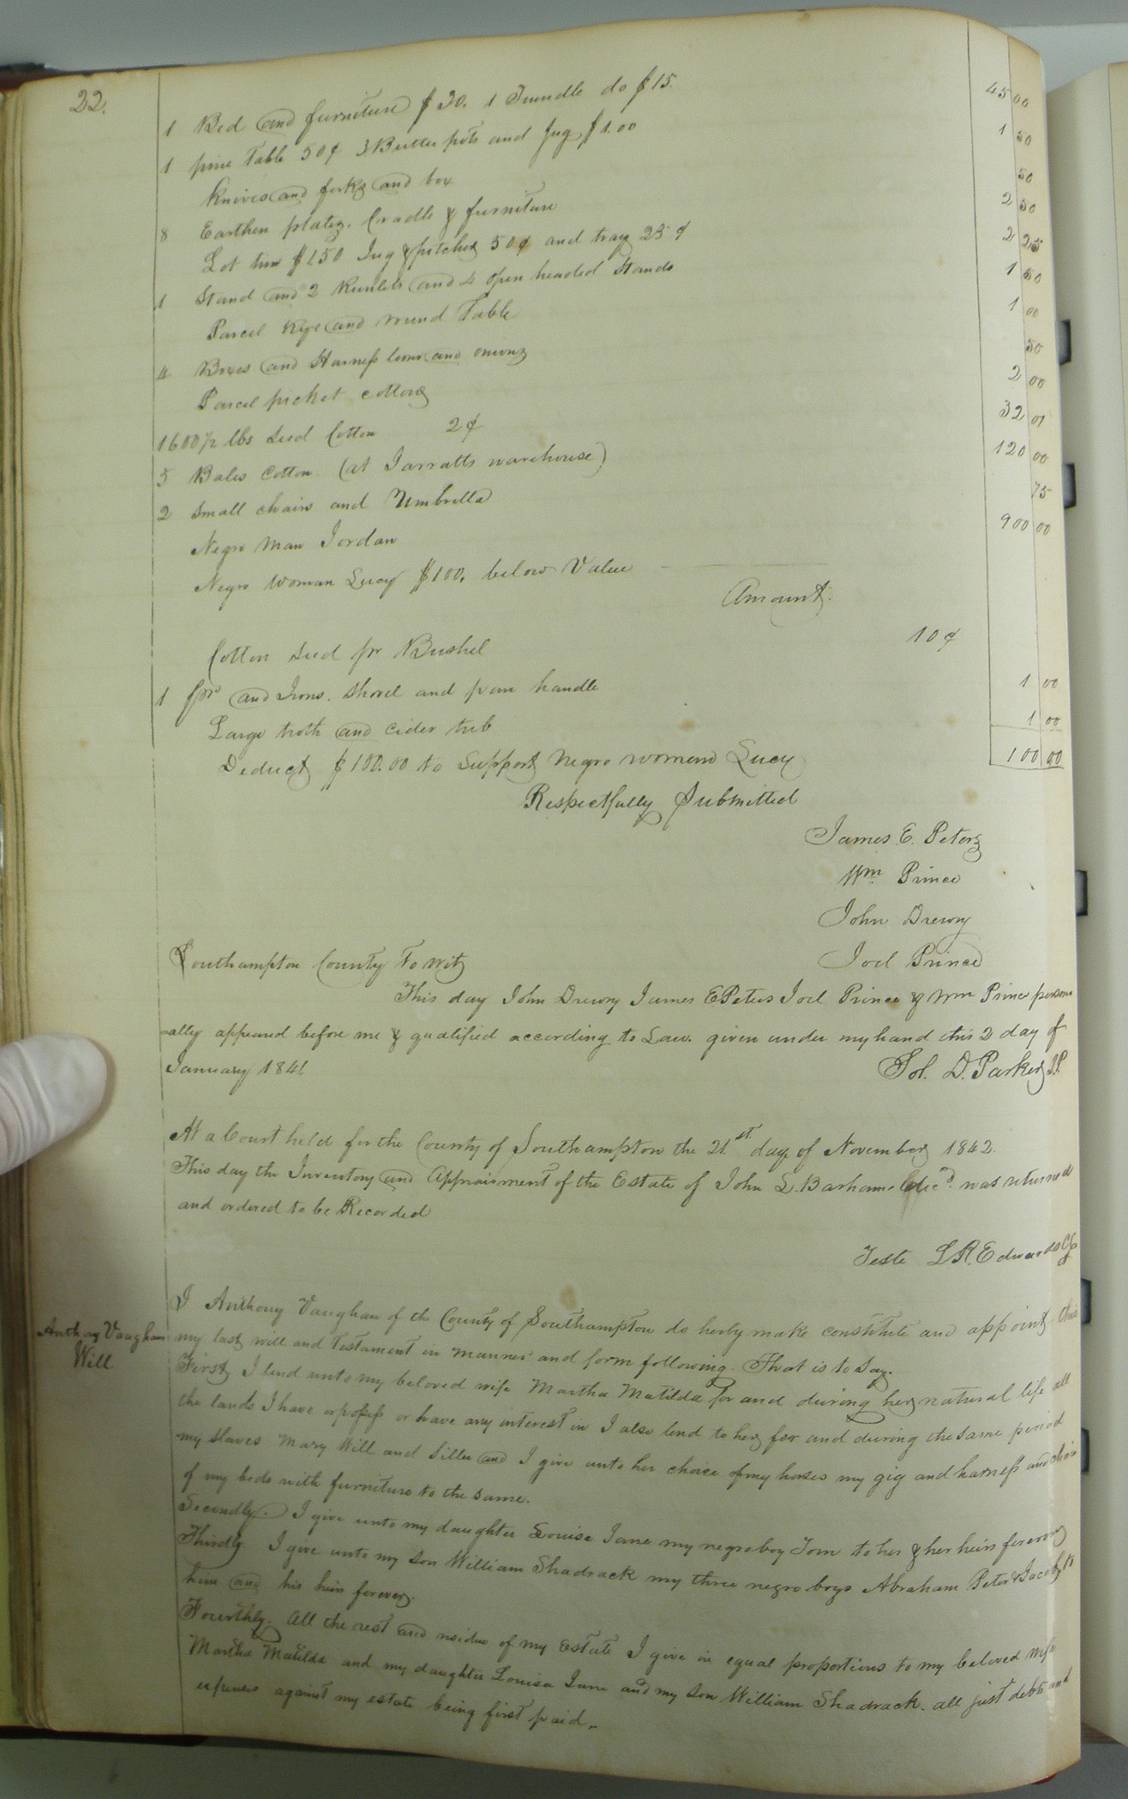 22.
1 Bed and furniture $30. 1 Trundle do $15. 45 00
1 pine Table 50¢ 3 Butter pots and Jug $1.00 1 50
Knives and forks and box 50
8 Earthen plates. Cradle & furniture 2 50
Lot tin $1.50 Jug & pitcher 50¢ and tray 25¢ 2 25
1 Stand and 2 Runlets and 4 open headed Stands 1 50
Parcel Rye and round Table 1 00
4 Boxes and Harness loom and onions 50
Parcel picket cotton 2 00
1600½ lbs Seed Cotton 2¢ 32 01
5 Bales Cotton (at Jarratts warehouse) 120 00
2 Small chairs and Umbrella 75
Negro Man Jordan 900 00
Negro Woman Lucy $100. below Value
Amount.
Cotton Seed pr Bushel 10¢
1 pr and Irons. Shovel and pan handle 1 00
Large troth and cider tub 1 00
Deduct $100.00 to Support Negro womend Lucy 100 00
Respectfully Submitted
James E. Peters
Wm Prince
John Drewry
Joel Prince
Southampton County To wit
This day John Drewry James E Peters Joel Prince & Wm Prince person
-ally appeared before me & qualified according to Law. given under my hand this 2 day of
January 1841
Sol. D. Parker J.P.
At a Court held for the County of Southampton the 21st day of November 1842.
This day the Inventory and Appraisment of the Estate of John L. Barham decd. was returned
and ordered to be Recorded
Teste L. R. Edwards Clk
Anthony Vaughan
Will
I Anthony Vaughan of the County of Southampton do herby make constitute and appoint this
my last will and Testament in manner and form following. That is to Say.
First, I lend unto my beloved wife Martha Matilda for and during her natural life all
the lands I have or possess or have any interest in I also lend to her for and during the same period
my slaves Mary Will and Siller and I give unto her choice of my horses my gig and harness and choice
of my beds with furniture to the same.
Secondly. I give unto my daughter Louisa Jane my negro boy Tom to her & her heirs forever
Thirdly. I give unto my son William Shadrack my three negro boys Abraham Peter & Jacob to
him and his heirs forever.
Fourthly. All the rest and residue of my Estate I give in equal proportions to my beloved wife
Martha Matilda and my daughter Louisa Jane and my son William Shadrack. all just debts and
expenses against my estate being first paid.